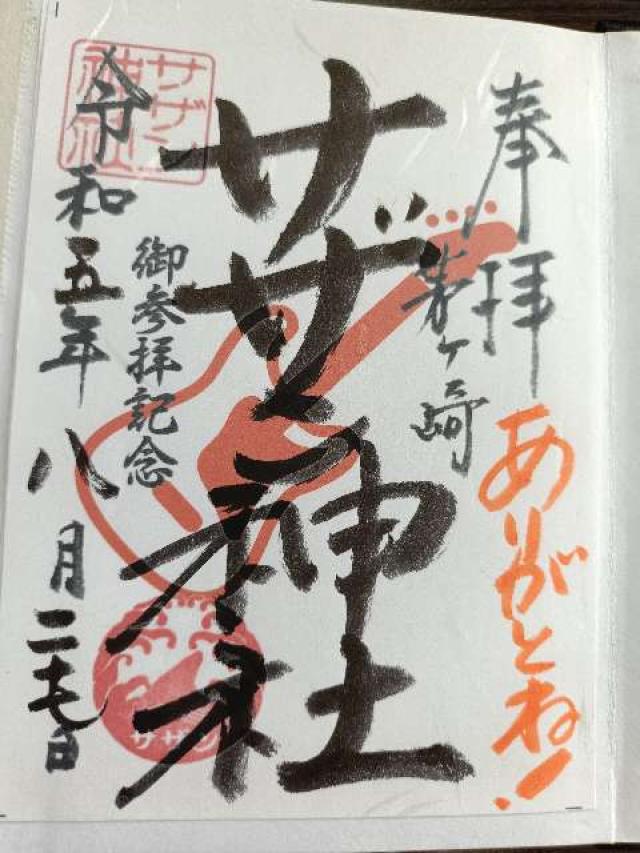 奉拝
ありがとね!
茅ヶ崎
サザン神社
御参拝記念
令和五年八月二十七日
サザン神社
サザン